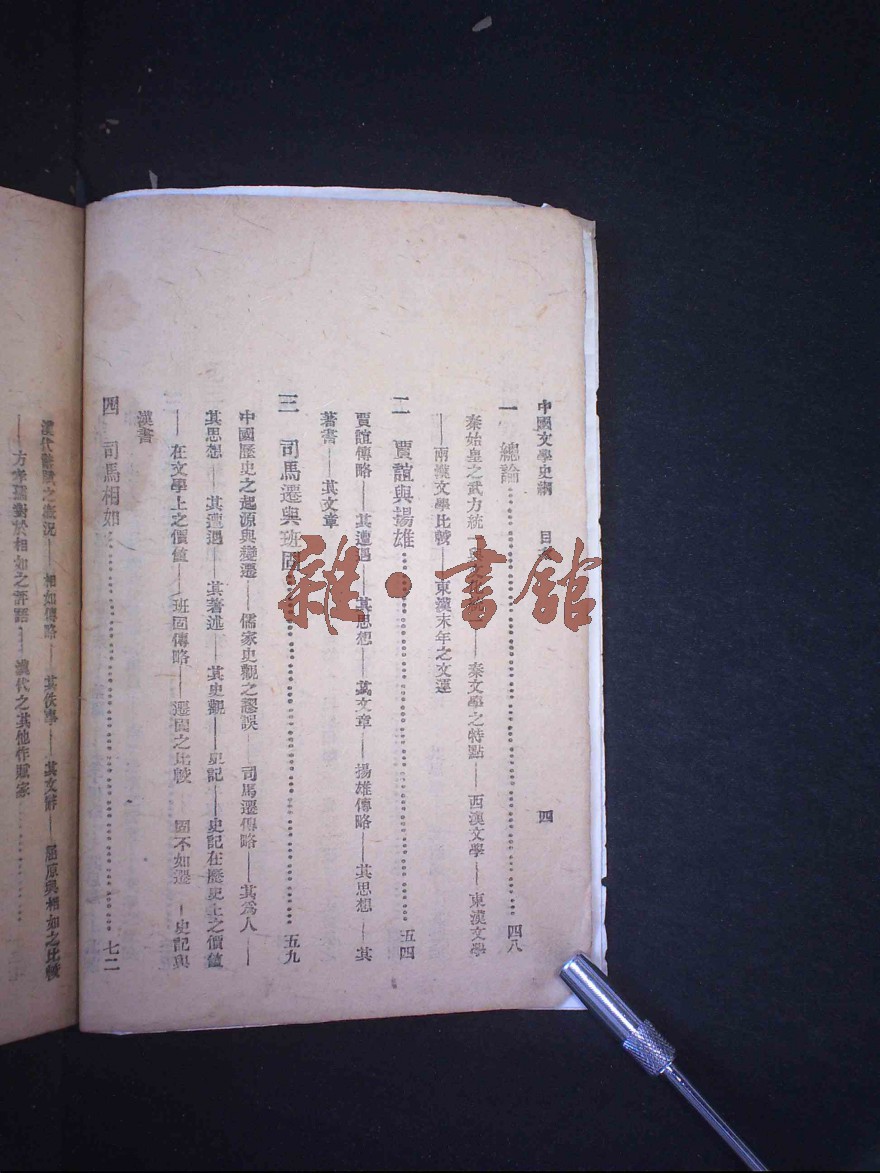 中國文學史綱 目 四
一 總論…………四八
秦始皇之武力統一 ——秦文學之特點——西漢文學——東漢文學
——兩漢文學比較——東漢末年之文運
二 賈誼與揚雄…………五四
賈誼傳略——其遭遇——其思想——其文章——揚雄傳略——其思想——其
著書——其文章
三 司馬遷與班固…………五九
中國歷史之起源與變遷——儒家史觀之謬誤——司馬遷傳略——其為人——
其思想——其遭遇——其著述——其史觀——史記——史記在歷史上之價值
——在文學上之價值——班固傳略——遷固之比較——固不如遷——史記與
漢書
四 司馬相如…………七二
漢代辭賦之概況——相如傳略——其佚事——其文辭——屈原與相如之比較
——方孝孺對於相如之評語——漢代之其他作賦家
雜·書館